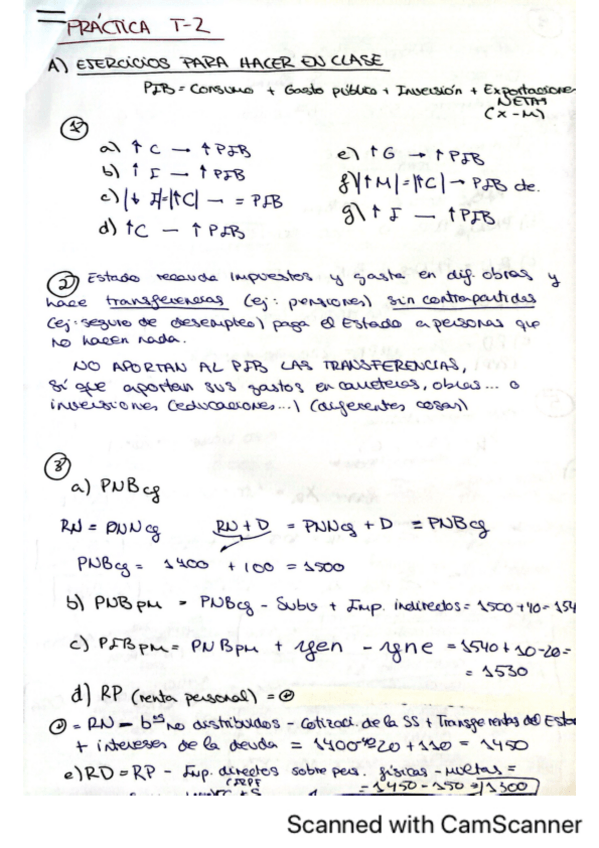 PRÁCTICA T-2
A) EJERCICIOS PARA HACER EN CLASE
PIB = Consumo + Gasto público + Inversión + Exportacione
NETAS
(X-M)
1
a) ↑ C → ↑ PIB
b) ↑ I → ↑ PIB
c) |↓ I|=|↑C| → = PIB
d) ↑C → ↑ PIB
e) ↑ G → ↑ PIB
f) |↑M|=|↑C| → PIB de.
g) ↑ I → ↑ PIB
2 Estado recauda impuestos y gasta en dif. obras y
hace transferencias (ej: pensiones) sin contrapartidas
(ej: seguro de desempleo) paga el Estado a personas que
no hacen nada.
NO APORTAN AL PIB LAS TRANSFERENCIAS,
sí que aportan sus gastos en carreteras, obras... o
inversiones (educaciones...) (diferentes cosas)
3
a) PNBcg
RN = PNNcg RN + D = PNNcg + D = PNBcg
PNBcg = 1400 + 100 = 1500
b) PNBpm = PNBcg - Subv + Imp. indirectos = 1500 + 40 = 154
c) PIBpm = PNBpm + rfen - rfne = 1540 + 10 - 20 =
= 1530
d) RP (renta personal) =
= RN - bºs no distribuidos - Cotizaci. de la SS + Transferencias del Estad
+ intereses de la deuda = 1400 20 + 110 = 1450
e) RD = RP - Imp. directos sobre pers. físicas - multas =
(IRPF
= 1450 - 150 = 1300
Scanned with CamScanner